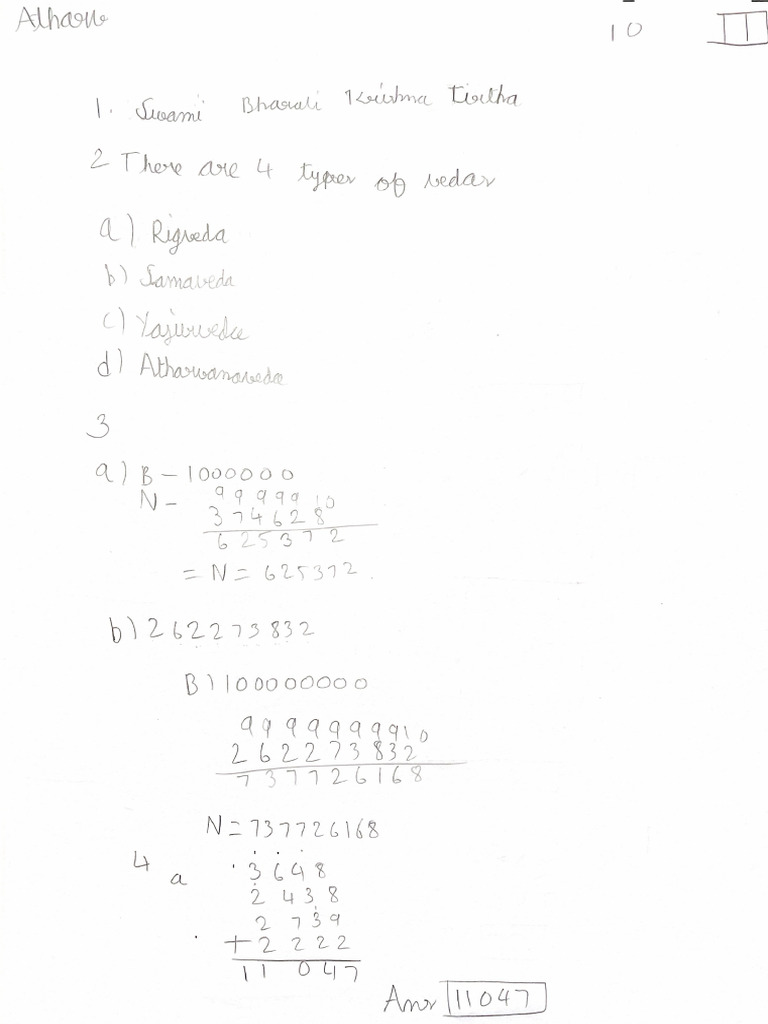 Atharv
10
1. Swami Bharati Krishna Tirtha
2 There are 4 types of vedas
a) Rigveda
b) Samaveda
c) Yajurveda
d) Atharvanaveda
3
a) B - 1000000
N - 9 9 9 9 9 10
3 7 4 6 2 8
6 2 5 3 7 2
= N = 625372
b) 262273832
B) 100000000
9 9 9 9 9 9 9 9 10
2 6 2 2 7 3 8 3 2
7 3 7 7 2 6 1 6 8
N = 737726168
4
a 3648
2 4 3 8
2 7 3 9
+ 2 2 2 2
1 1 0 4 7
Ans 11047